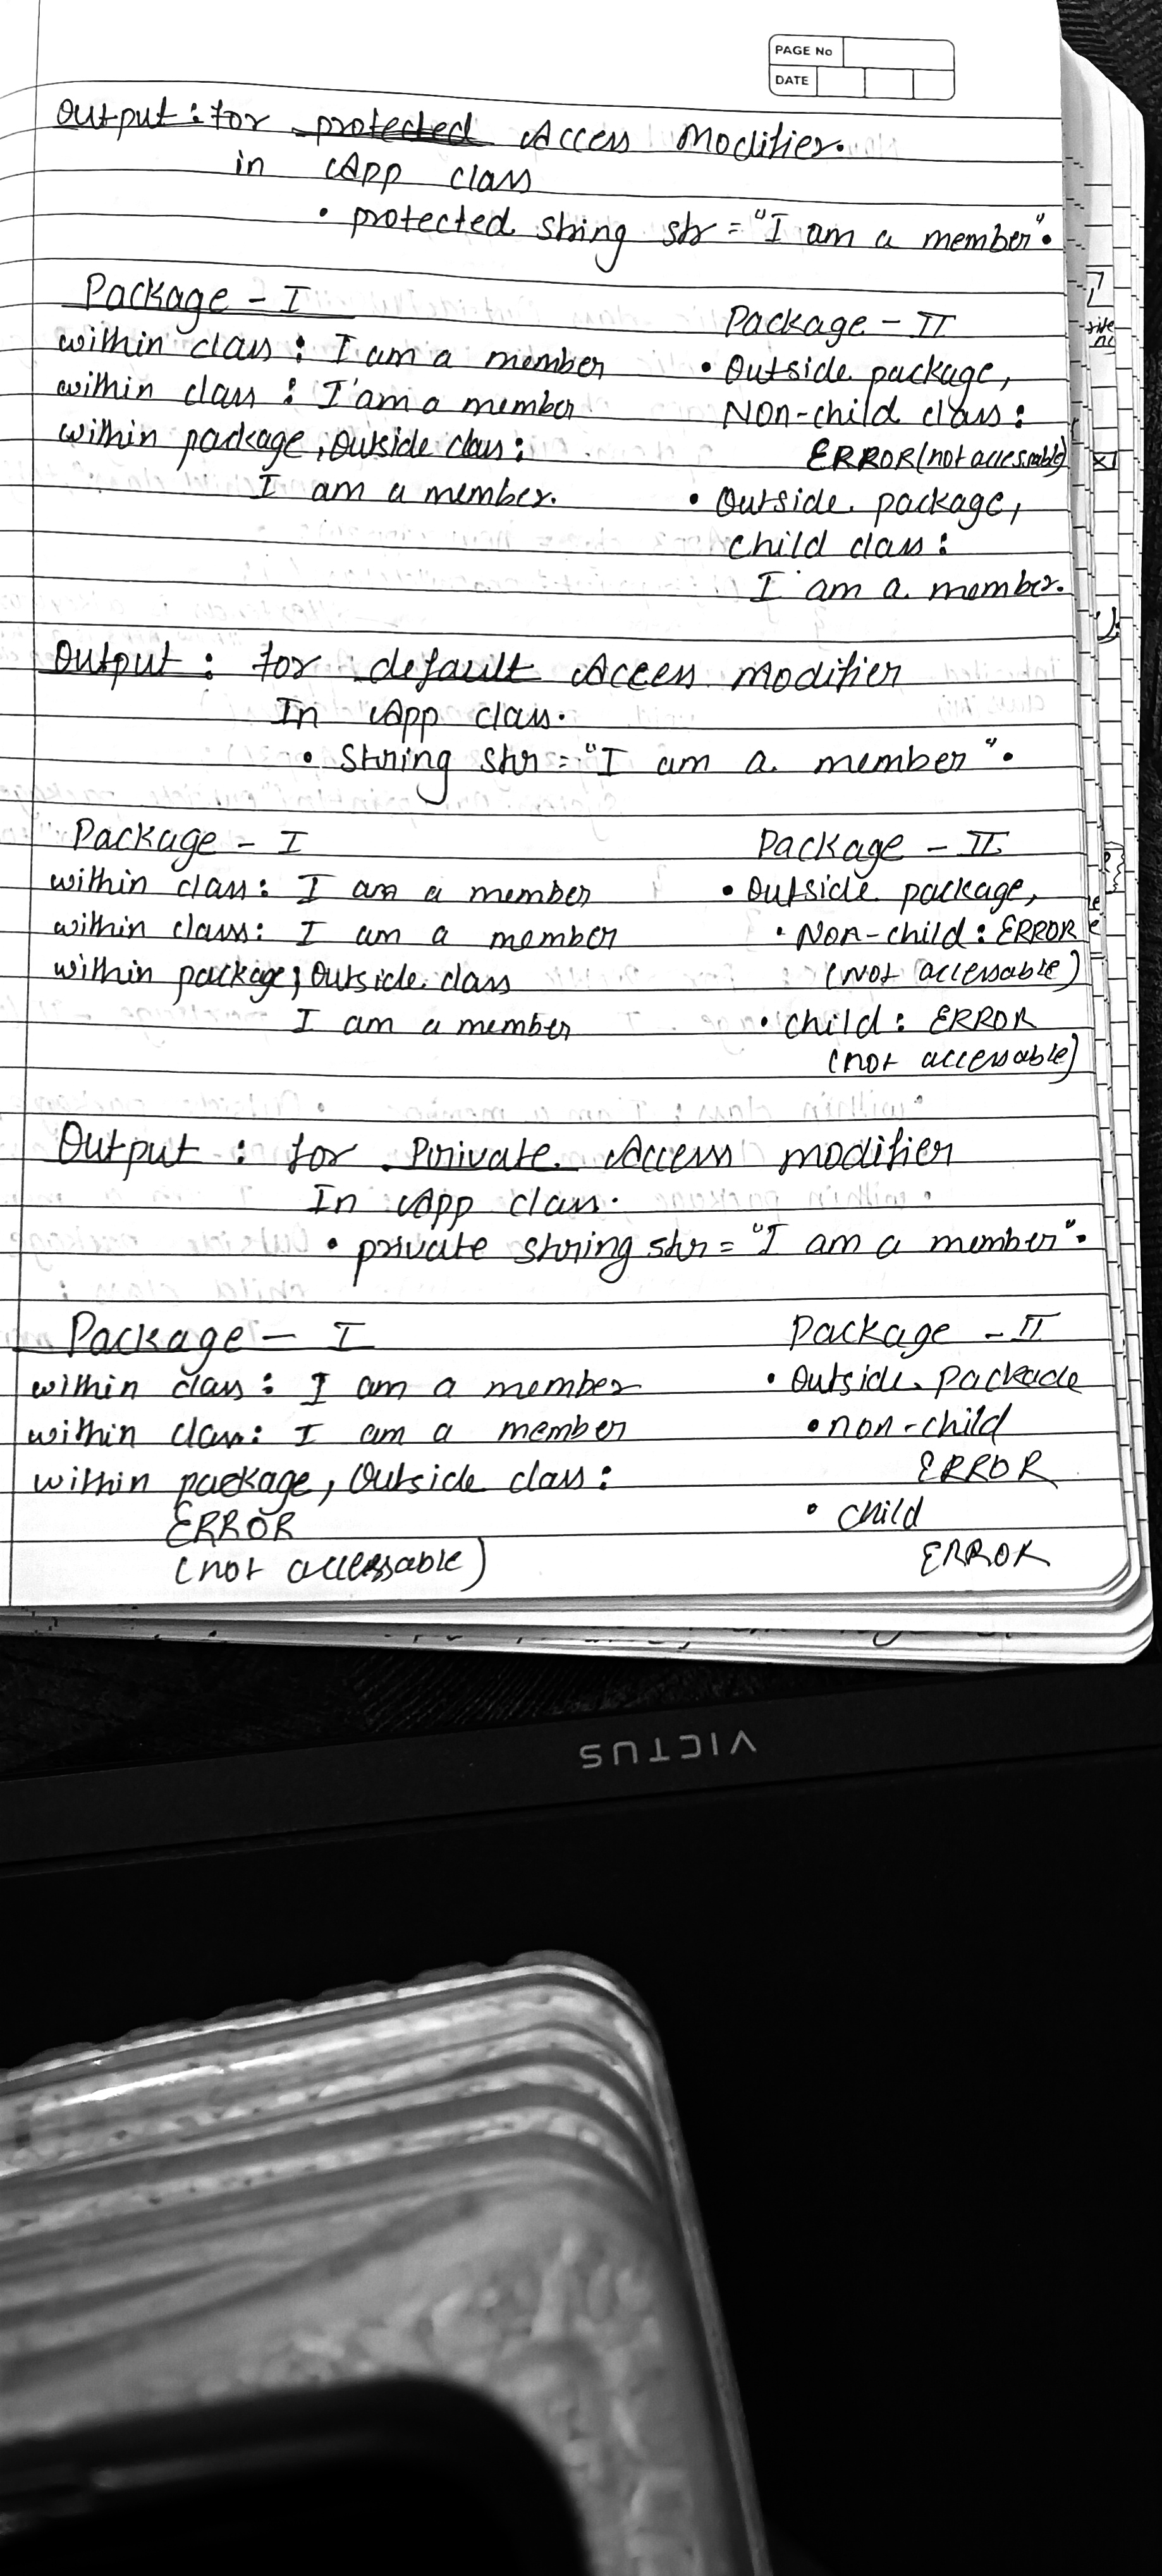 PAGE No
DATE
Output : for protected Access Modifier.
in App class
• protected string str = "I am a member".
Package - I
within class : I am a member
within class : I am a member
within package, Outside class :
I am a member.
Package - II
• Outside package,
Non-child class :
ERROR (not accessable)
• Outside package,
child class :
I am a member.
Output : for default Access modifier
In App class.
• String str = "I am a member".
Package - I
within class : I am a member
within class : I am a member
within package, Outside class
I am a member
Package - II
• Outside package,
• Non-child : ERROR
(Not accessable)
• child : ERROR
(not accessable)
Output : for Private Access modifier
In App class.
• private string str = "I am a member".
Package - I
within class : I am a member
within class : I am a member
within package, Outside class :
ERROR
(not accessable)
Package - II
• Outside Packade
• non-child
ERROR
• child
ERROR
VICTUS